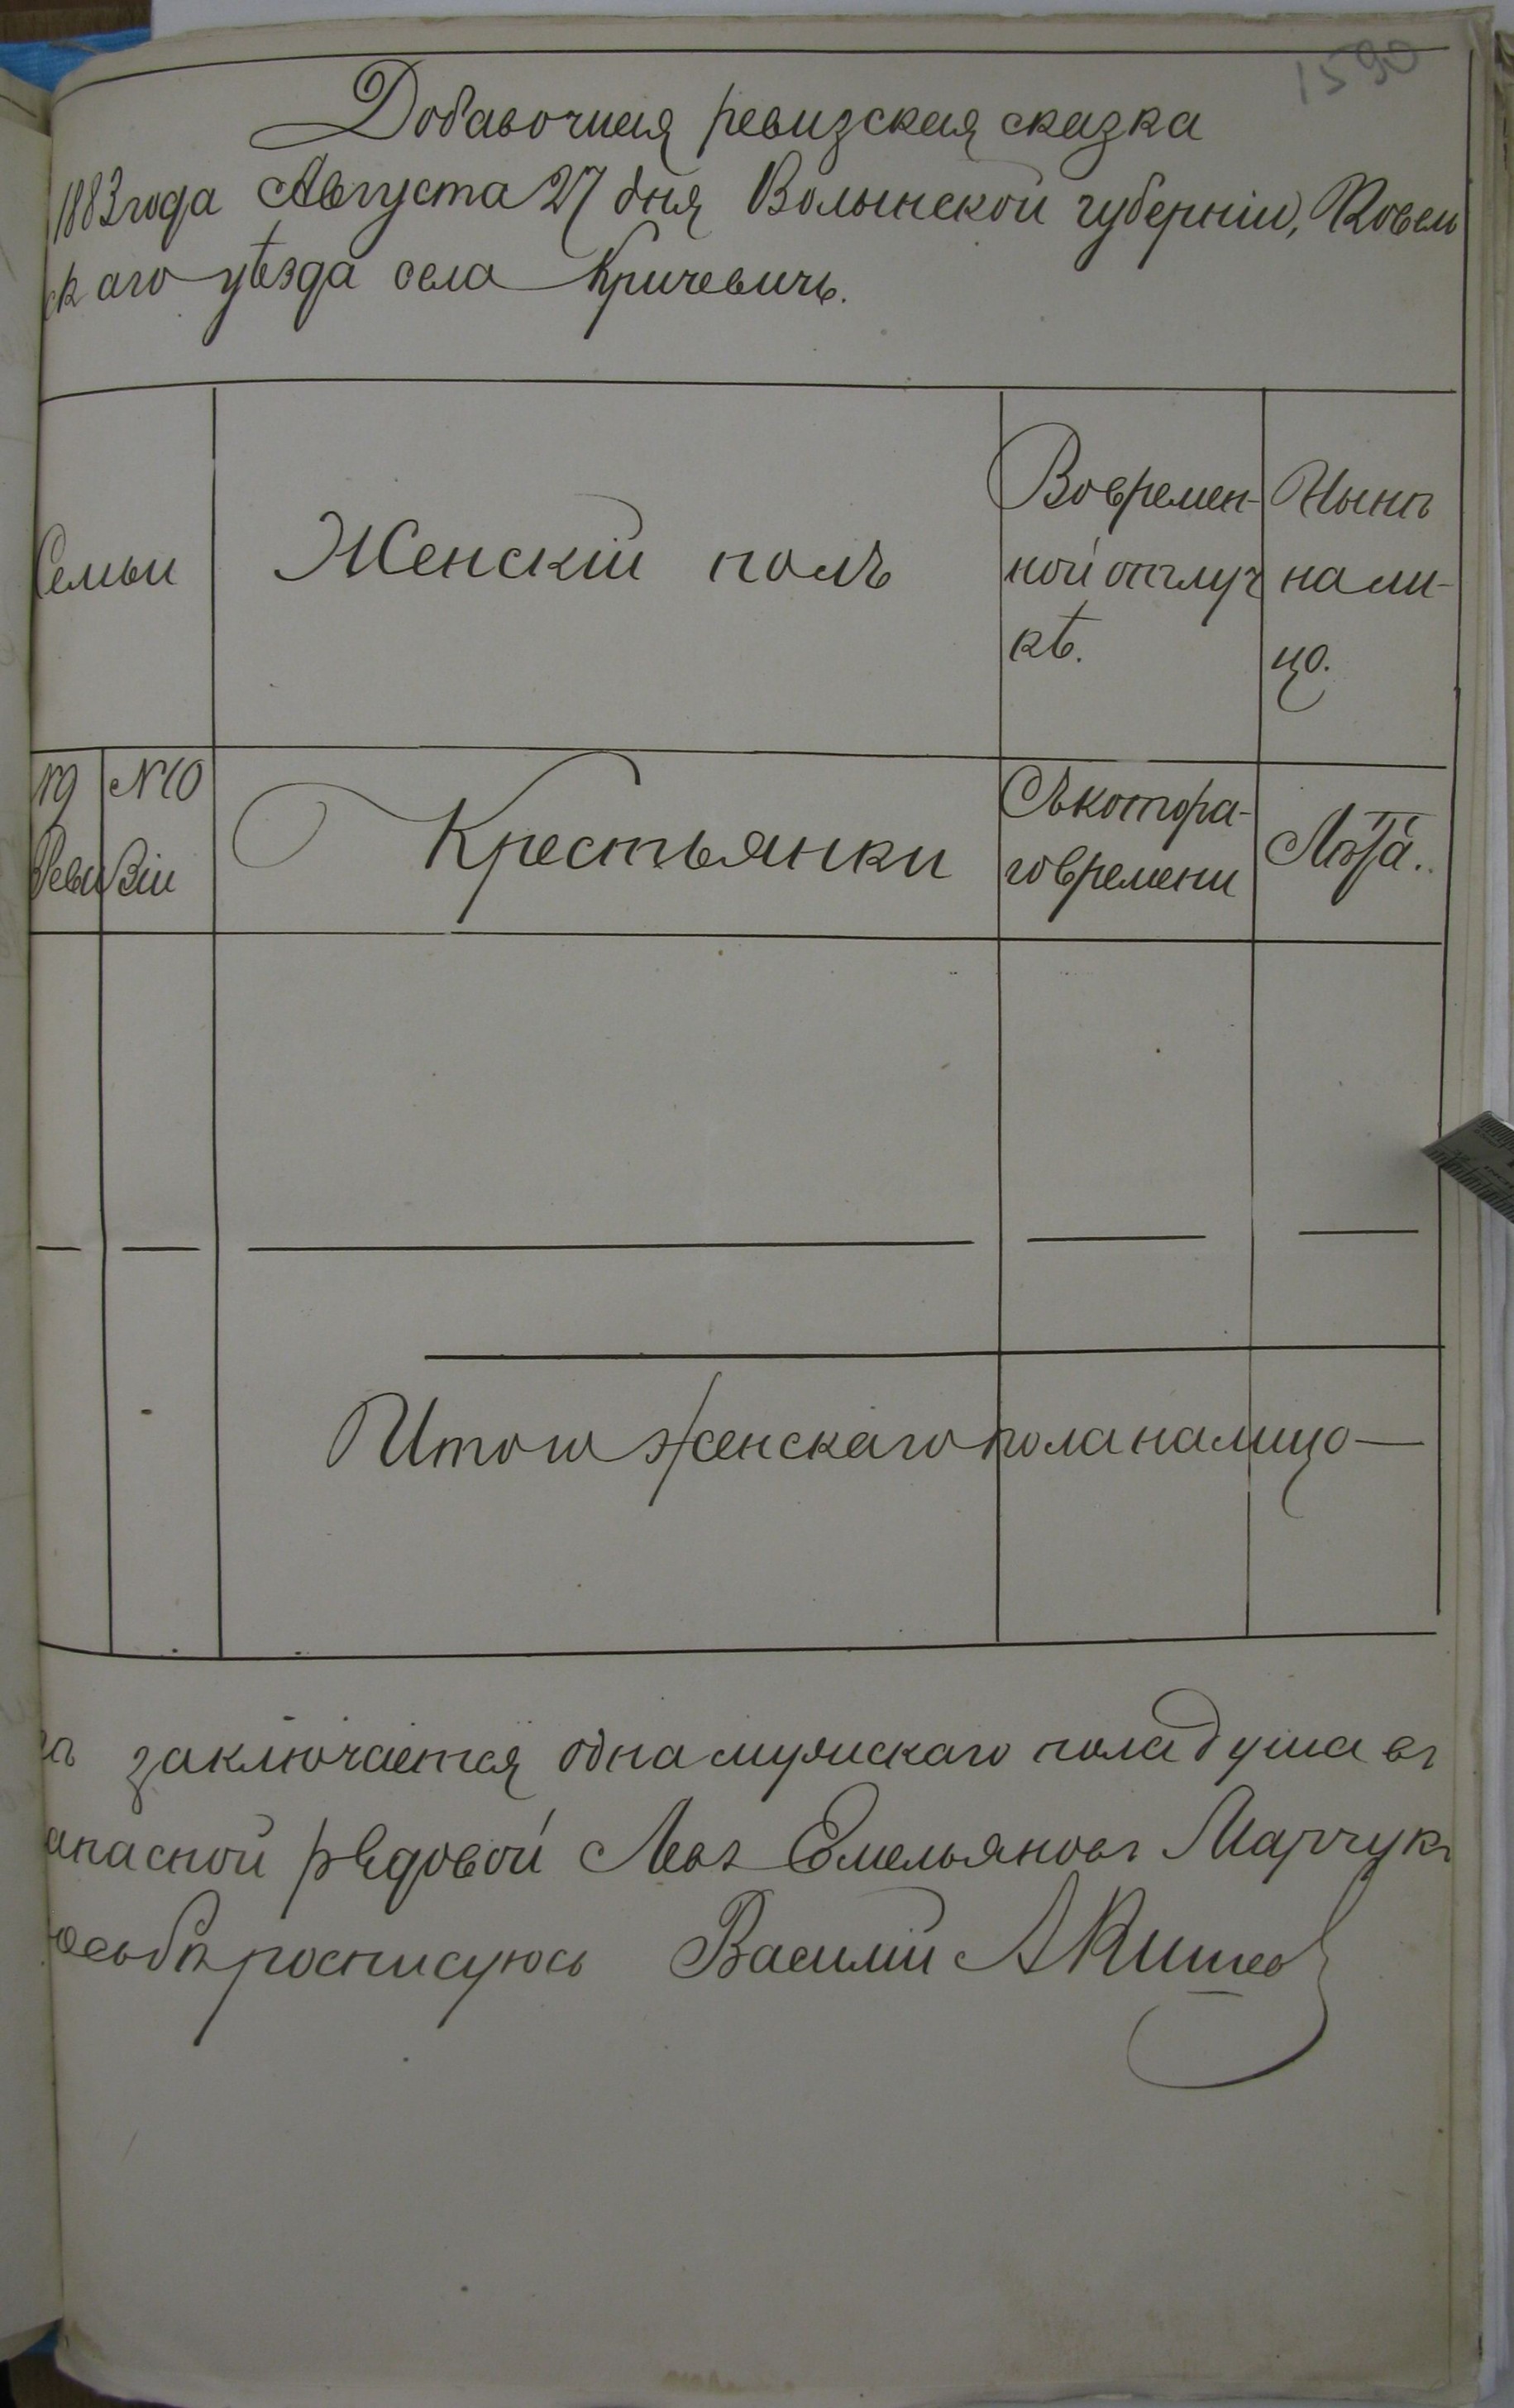 1590
Добавочная ревизская сказка
1883 года Августа 27 дня Волынской губерніи, Ковель
скаго уѣзда села Кричевичъ.
Семьи
Женскій полъ
Во времен-
ной отлуч
кѣ.
Нынѣ
на ли-
цо.
№9 №10
Реви зіи
Крестьянки
Съ котора-
го времени
Лѣта..
Итого женскаго пола на лицо —
заключается одна мужскаго пола душа въ
апасной рядовой Левъ Емельяновъ Марчукъ
росписуюсь Василій